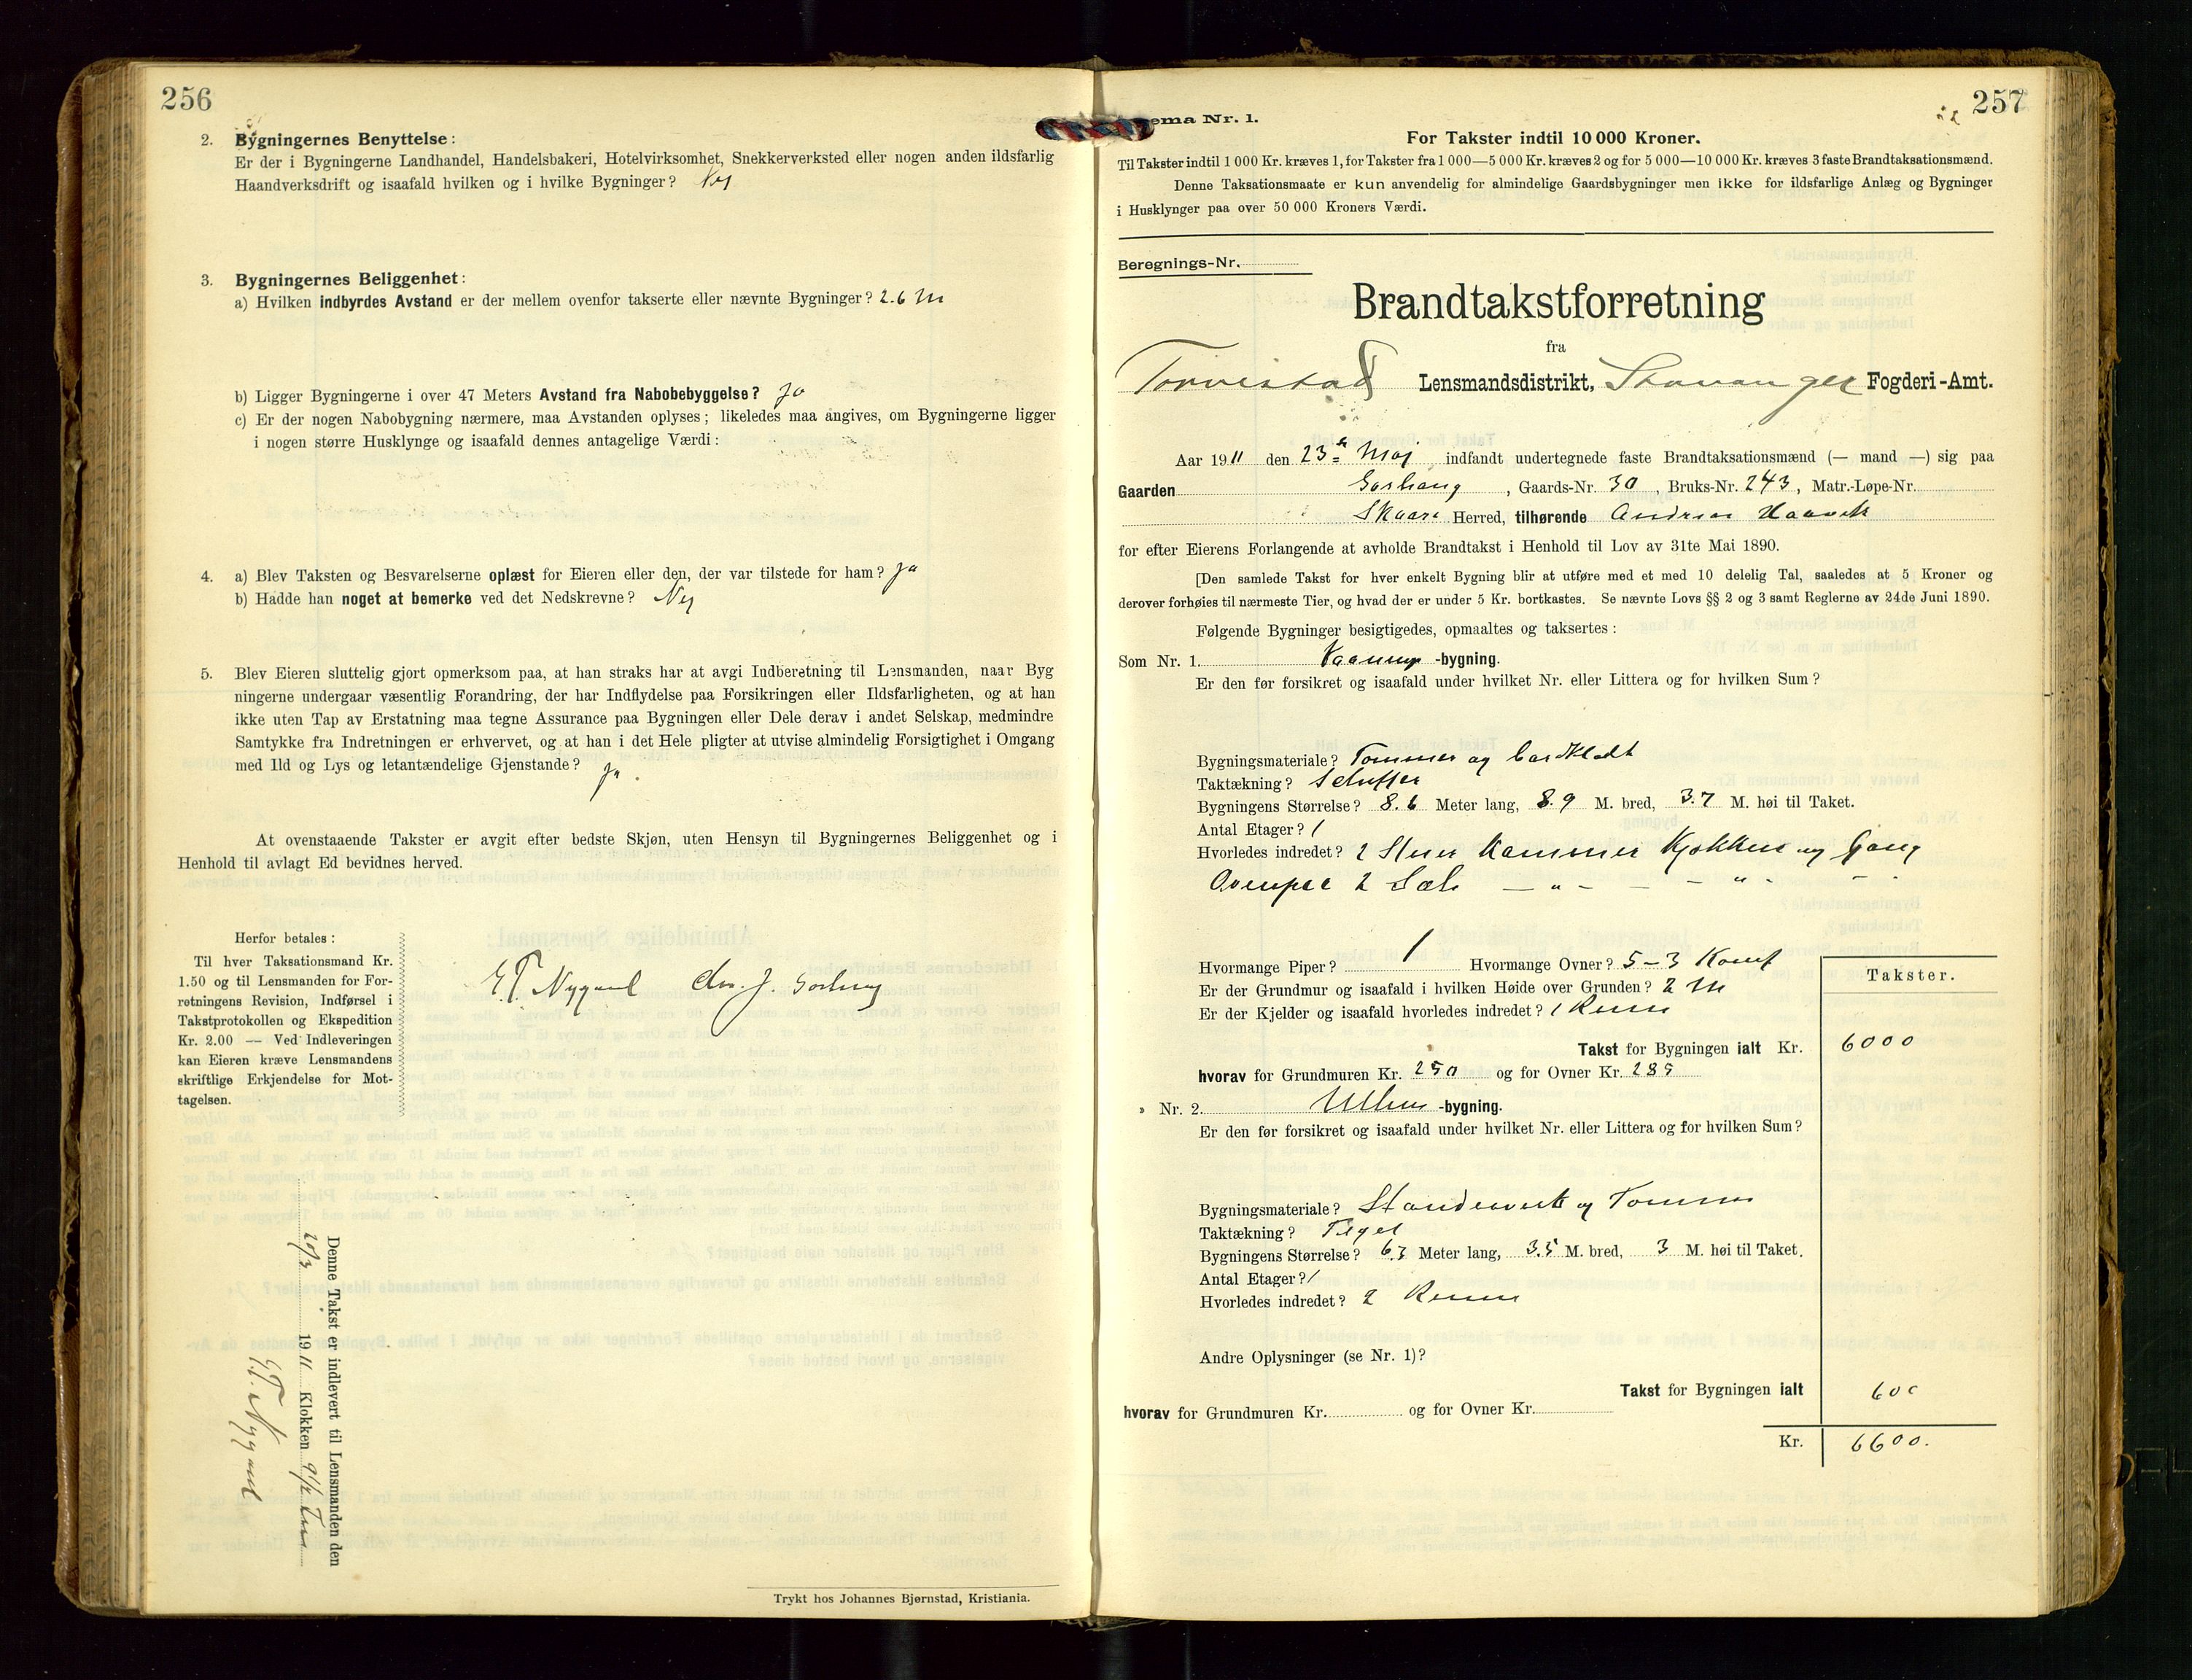 256
2. Bygningernes Benyttelse:
Er der i Bygningerne Landhandel, Handelsbakeri, Hotelvirksomhet, Snekkerverksted eller nogen anden ildsfarlig
Haandverksdrift og isaafald hvilken og i hvilke Bygninger? Nej
3. Bygningernes Beliggenhet:
a) Hvilken indbyrdes Avstand er der mellem ovenfor takserte eller nævnte Bygninger? 2.6 M
b) Ligger Bygningerne i over 47 Meters Avstand fra Nabobebyggelse? Ja
c) Er der nogen Nabobygning nærmere, maa Avstanden oplyses; likeledes maa angives, om Bygningerne ligger
i nogen større Husklynge og isaafald dennes antagelige Værdi:
4. a) Blev Taksten og Besvarelserne oplæst for Eieren eller den, der var tilstede for ham? Ja
b) Hadde han noget at bemerke ved det Nedskrevne? Nej
5. Blev Eieren sluttelig gjort opmerksom paa, at han straks har at avgi Indberetning til Lensmanden, naar Byg
ningerne undergaar væsentlig Forandring, der har Indflydelse paa Forsikringen eller Ildsfarligheten, og at han
ikke uten Tap av Erstatning maa tegne Assurance paa Bygningen eller Dele derav i andet Selskap, medmindre
Samtykke fra Indretningen er erhvervet, og at han i det Hele pligter at utvise almindelig Forsigtighet i Omgang
med Ild og Lys og letantændelige Gjenstande? Ja.
At ovenstaaende Takster er avgit efter bedste Skjøn, uten Hensyn til Bygningernes Beliggenhet og i
Henhold til avlagt Ed bevidnes herved.
Herfor betales:
Til hver Taksationsmand Kr.
1.50 og til Lensmanden for For-
retningens Revision, Indførsel i
Takstprotokollen og Ekspedition
Kr. 2.00 — Ved Indleveringen
kan Eieren kræve Lensmandens
skriftlige Erkjendelse for Mot-
tagelsen.
E.T. Nygaard Chr. J. Gorhaug
Denne Takst er indlevert til Lensmanden den
20/3 1911 Klokken 9 1/2 Fm
E.T. Nygaard
Trykt hos Johannes Bjørnstad, Kristiania.
257
ema Nr. 1.
For Takster indtil 10 000 Kroner.
Til Takster indtil 1 000 Kr. kræves 1, for Takster fra 1 000—5 000 Kr. kræves 2 og for 5 000—10 000 Kr. kræves 3 faste Brandtaksationsmænd.
Denne Taksationsmaate er kun anvendelig for almindelige Gaardsbygninger men ikke for ildsfarlige Anlæg og Bygninger
i Husklynger paa over 50 000 Kroners Værdi.
Beregnings-Nr.
Brandtakstforretning
fra
Torvestad Lensmandsdistrikt, Stavanger Fogderi-Amt.
Aar 1911 den 23de Maj indfandt undertegnede faste Brandtaksationsmænd (— mand —) sig paa
Gaarden Gorhaug, Gaards-Nr. 30, Bruks-Nr. 243, Matr.-Løpe-Nr.
Skaare Herred, tilhørende Andreas Haavik
for efter Eierens Forlangende at avholde Brandtakst i Henhold til Lov av 31te Mai 1890.
[Den samlede Takst for hver enkelt Bygning blir at utføre med et med 10 delelig Tal, saaledes at 5 Kroner og
derover forhøies til nærmeste Tier, og hvad der er under 5 Kr. bortkastes. Se nævnte Lovs §§ 2 og 3 samt Reglerne av 24de Juni 1890.
Følgende Bygninger besigtigedes, opmaaltes og taksertes:
Som Nr. 1. Vaanings-bygning.
Er den før forsikret og isaafald under hvilket Nr. eller Littera og for hvilken Sum?
Bygningsmateriale? Tømmer og bordklædt
Taktækning? Schiffer
Bygningens Størrelse? 8.6 Meter lang, 8.9 M. bred, 3.7 M. høi til Taket.
Antal Etager? 1
Hvorledes indredet? 2 Stuer Kammer Kjøkken og Gang
Ovenpaa 2 Sale — „ — — — „ — —
Hvormange Piper? 1 Hvormange Ovner? 5-3 Komf
Er der Grundmur og isaafald i hvilken Høide over Grunden? 2 M
Er der Kjelder og isaafald hvorledes indredet? 1 Rum
Takster.
Takst for Bygningen ialt Kr. 6000
hvorav for Grundmuren Kr. 250 og for Ovner Kr. 285
» Nr. 2. Udhus-bygning.
Er den før forsikret og isaafald under hvilket Nr. eller Littera og for hvilken Sum?
Bygningsmateriale? Standerverk og Tømmer
Taktækning? Tegel
Bygningens Størrelse? 6.7 Meter lang, 3.5 M. bred, 3 M. høi til Taket.
Antal Etager? 1
Hvorledes indredet? 2 Rum
Andre Oplysninger (se Nr. 1)?
Takst for Bygningen ialt 600
hvorav for Grundmuren Kr. og for Ovner Kr.
Kr. 6600.